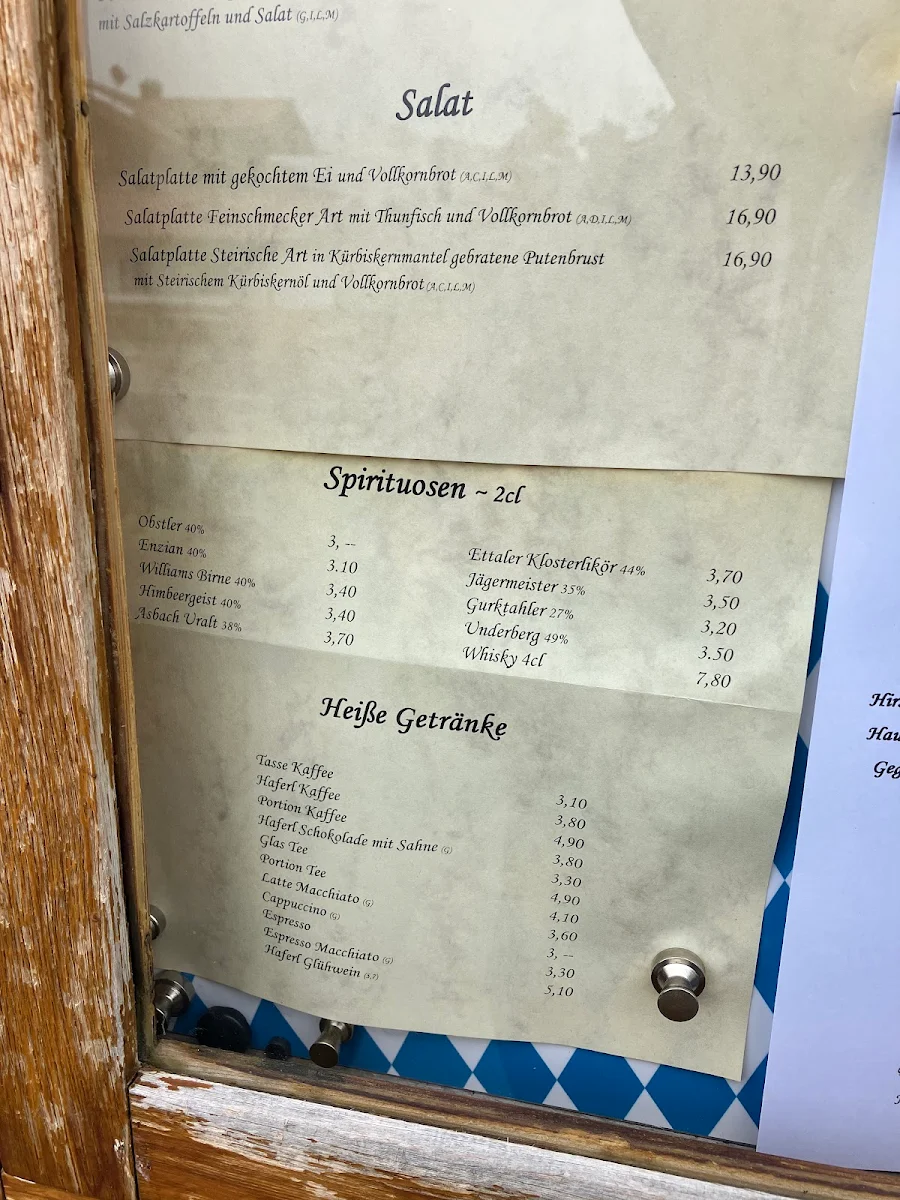 mit Salzkartoffeln und Salat (G,I,L,M)
Salat
Salatplatte mit gekochtem Ei und Vollkornbrot (A,C,I,L,M) 13,90
Salatplatte Feinschmecker Art mit Thunfisch und Vollkornbrot (A,D,I,L,M) 16,90
Salatplatte Steirische Art in Kürbiskernmantel gebratene Putenbrust 16,90
mit Steirischem Kürbiskernöl und Vollkornbrot (A,C,I,L,M)
Spirituosen ~ 2cl
Obstler 40% 3, --
Enzian 40% 3.10
Williams Birne 40% 3,40
Himbeergeist 40% 3,40
Asbach Uralt 38% 3,70
Ettaler Klosterlikör 44% 3,70
Jägermeister 35% 3,50
Gurktahler 27% 3,20
Underberg 49% 3.50
Whisky 4cl 7,80
Heiße Getränke
Tasse Kaffee 3,10
Haferl Kaffee 3,80
Portion Kaffee 4,90
Haferl Schokolade mit Sahne (G) 3,80
Glas Tee 3,30
Portion Tee 4,90
Latte Macchiato (G) 4,10
Cappuccino (G) 3,60
Espresso 3, --
Espresso Macchiato (G) 3,30
Haferl Glühwein (5,7) 5,10
Hir
Hau
Geg